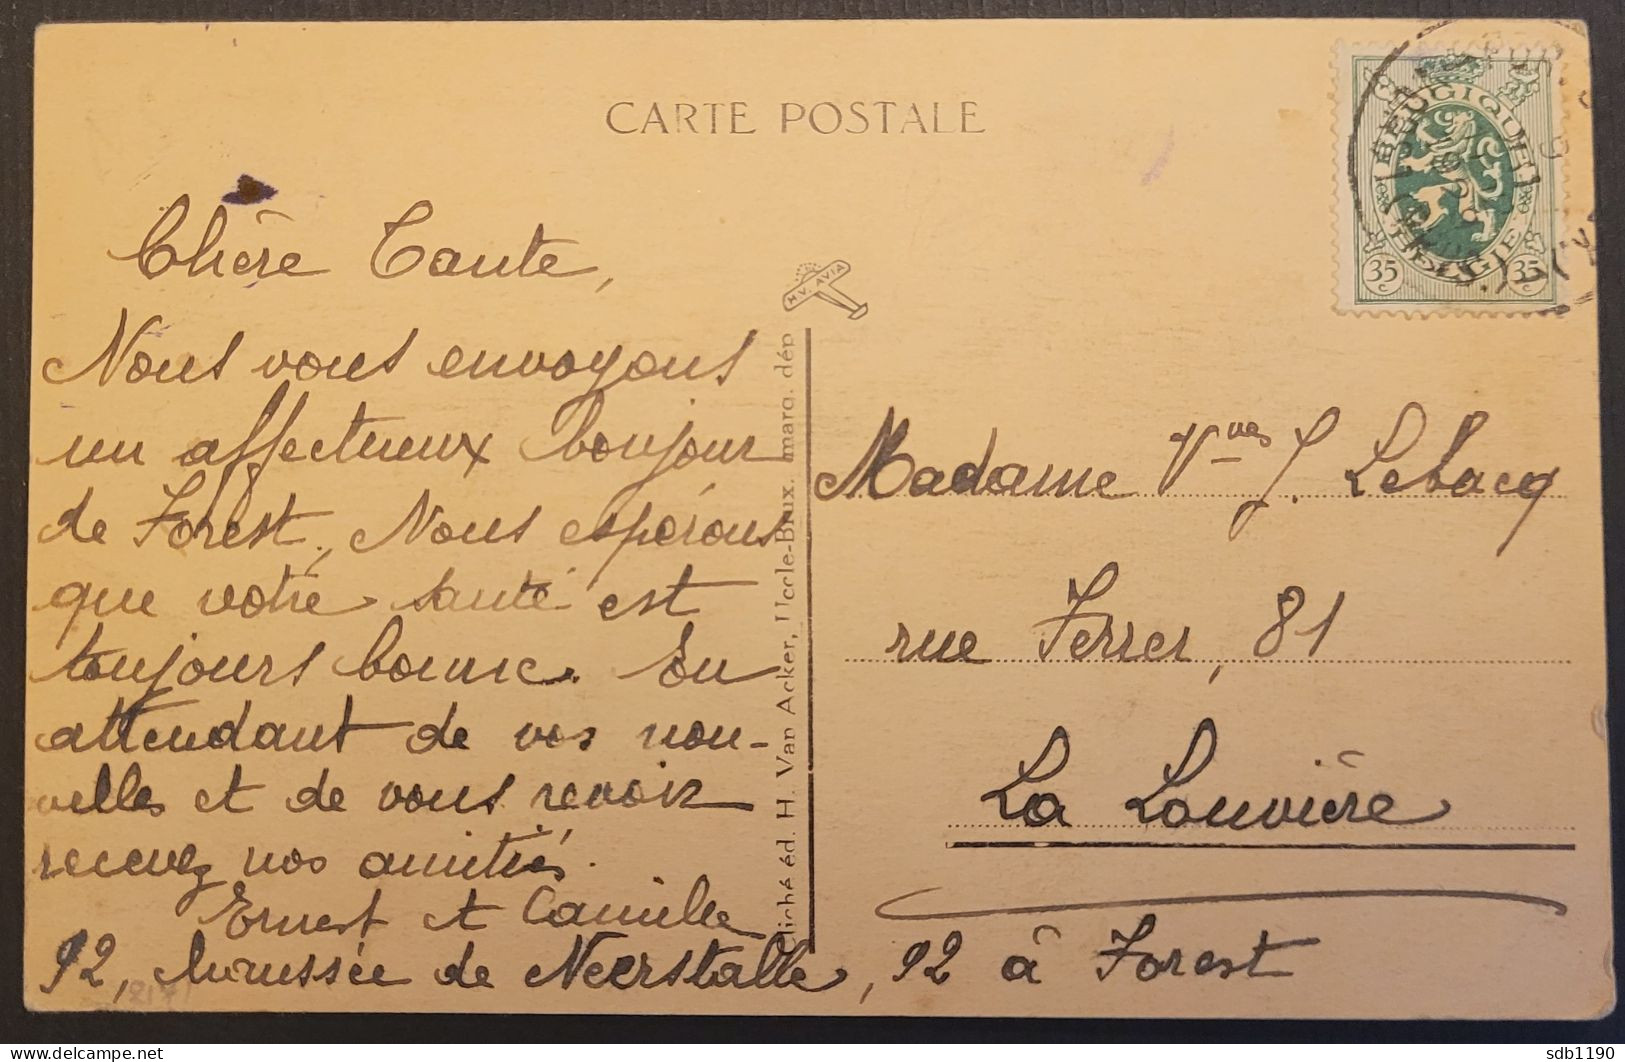 CARTE POSTALE
BELGIQUE
BELGIE
35c
35c
H.V. AVIA
Cliché éd. H. Van Acker, Uccle-Brux. marq. dép
Chère Tante,
Nous vous envoyons
un affectueux bonjour
de Forest. Nous espérons
que votre santé est
toujours bonne. En
attendant de vos nou-
velles et de vous revoir
recevez nos amitiés.
Ernest et Camille
92, chaussée de Neerstalle, 92 à Forest
Madame Vves J. Lebacq
rue Ferrer, 81
La Louvière
sdb1190